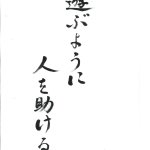 遊ぶように
人を助ける